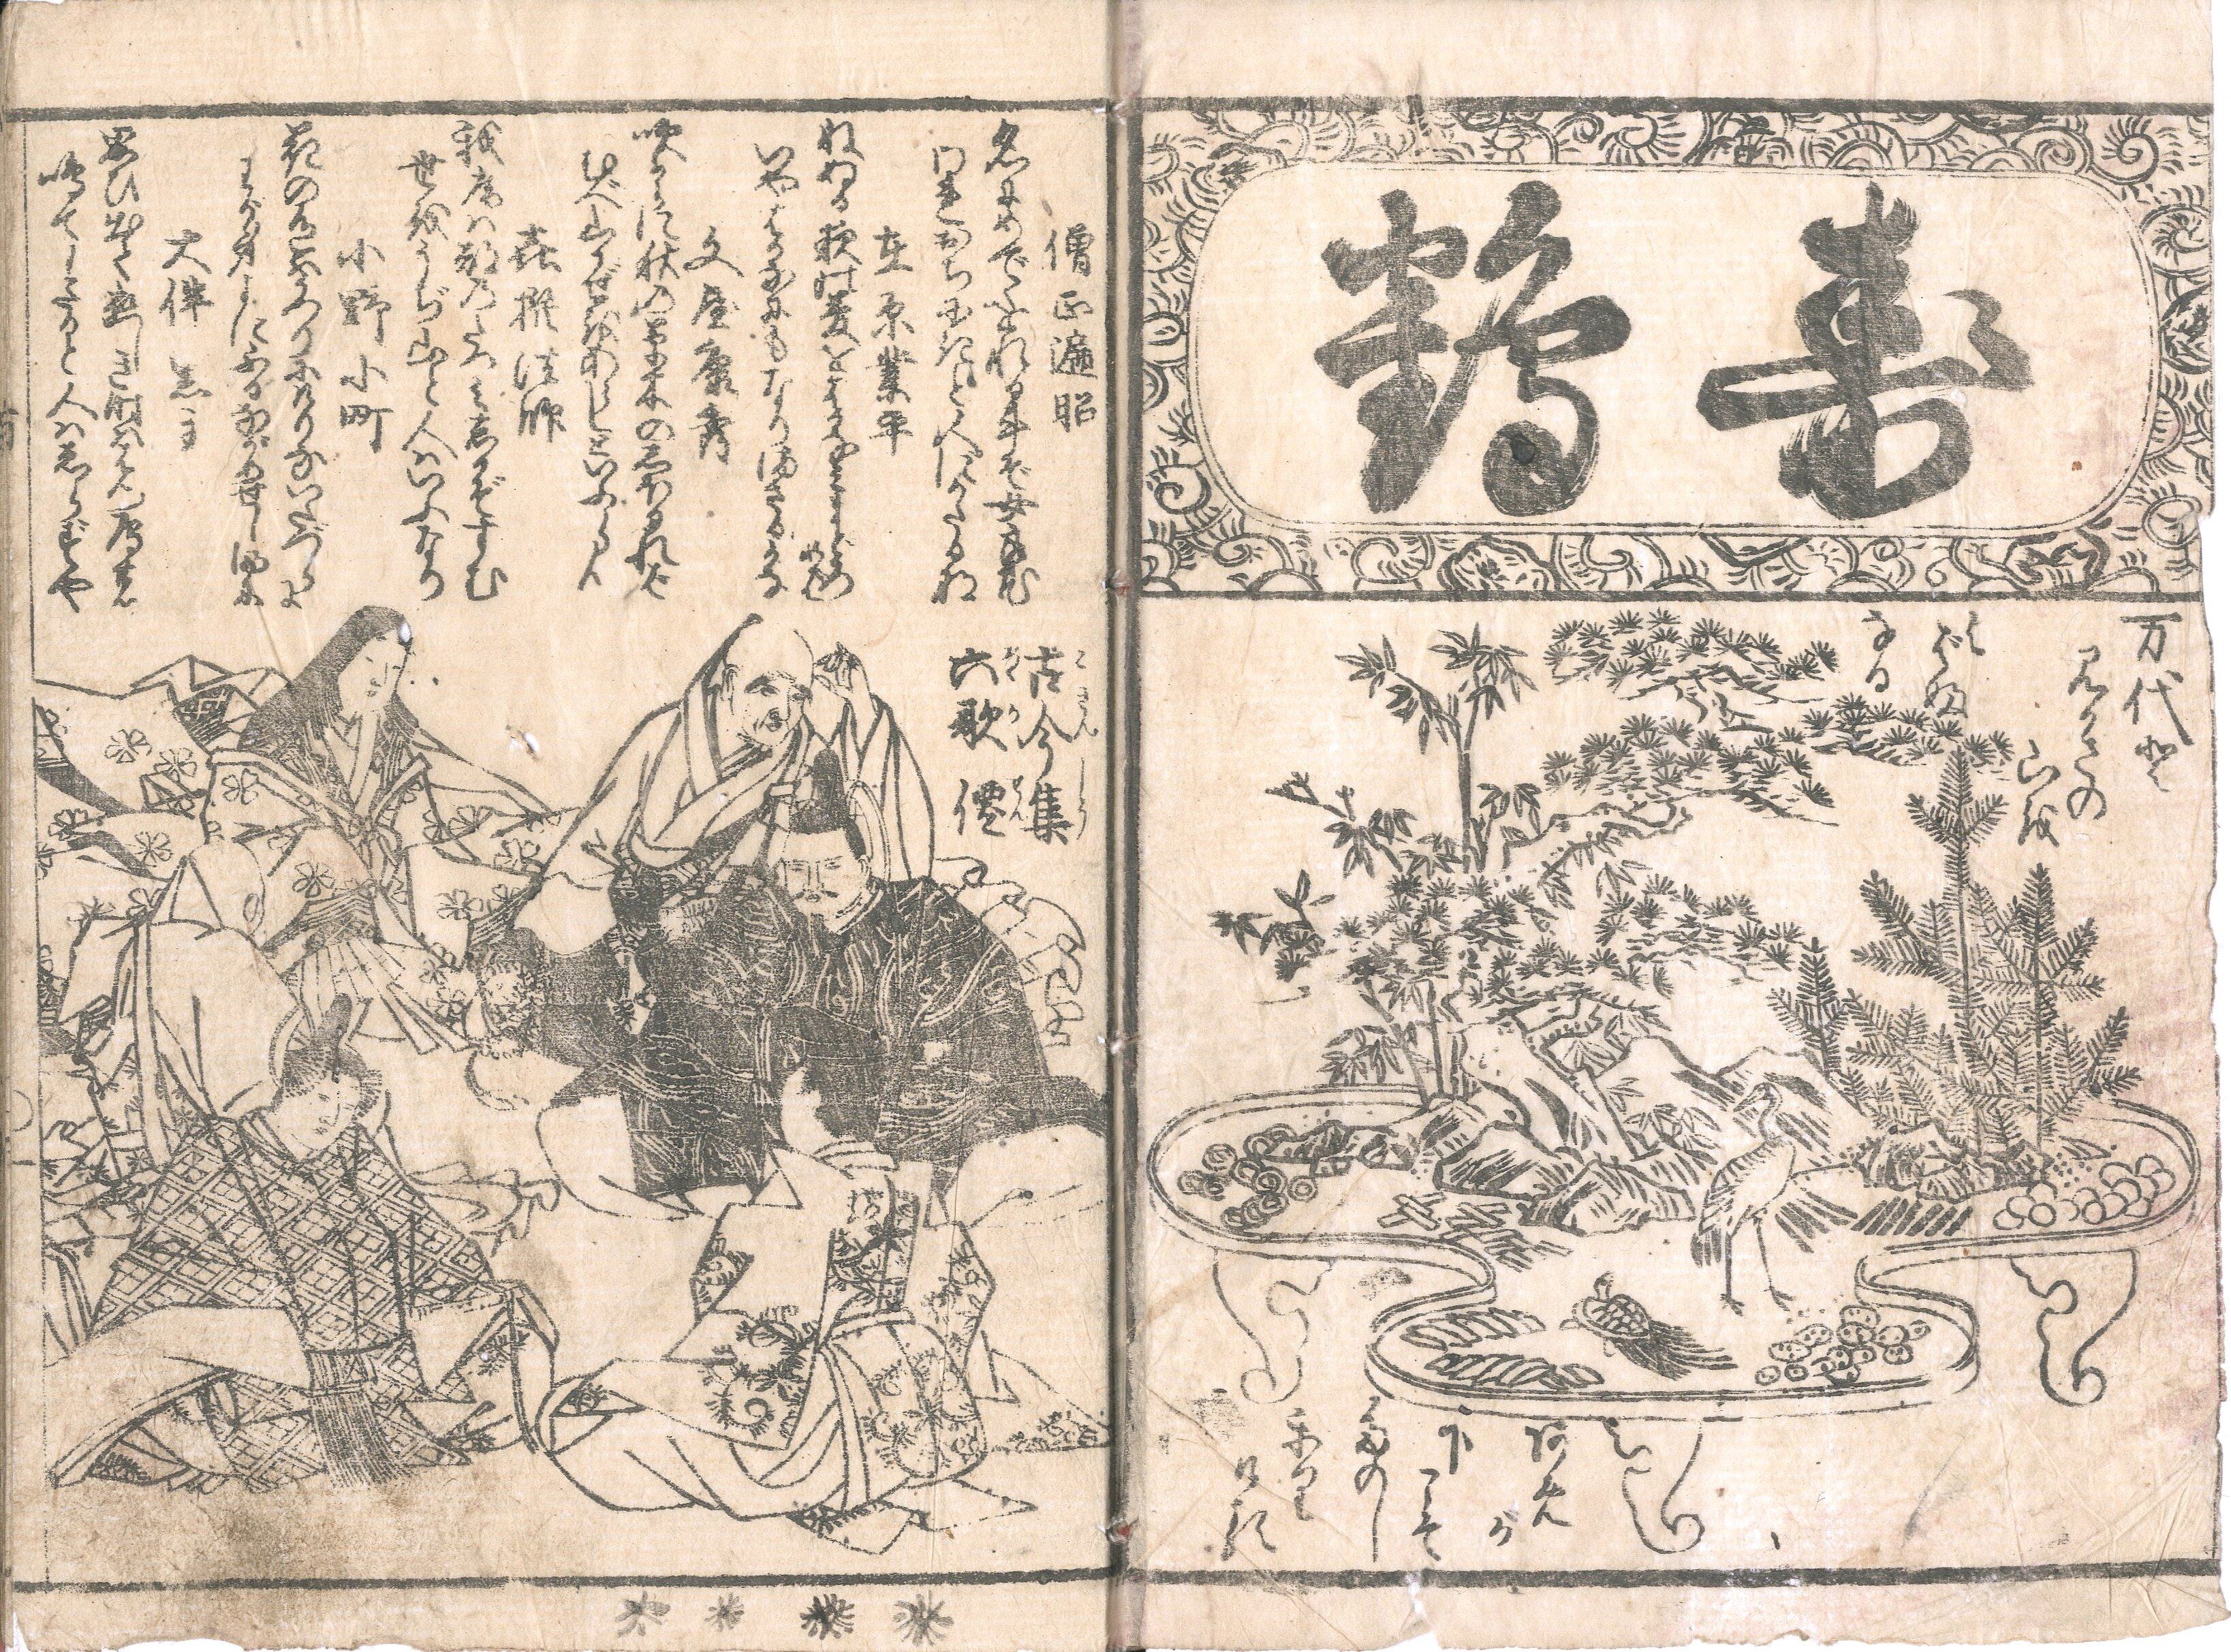 寿鶴
万代を
僧正遍昭
名にめでゝおれる斗ぞ女郎花
われおちにきと人にかたるな
在原業平
ねぬる夜の夢をはかなみまどろめば
いやはかなにもなりまさるかな
文屋康秀
吹からに秋の草木のしほるれば
むべ山かぜをあらしといふらん
喜撰法師
我庵は都のたつみしかぞすむ
世をうぢ山と人はいふなり
小野小町
花の色はうつりにけりないたづらに
わが身よにふるながめせしまに
大伴黒主
思ひ出て恋しき時ははつ鴈の
鳴てわたると人はしらずや
古今集
こきんしう
六歌僊
ろくかせん